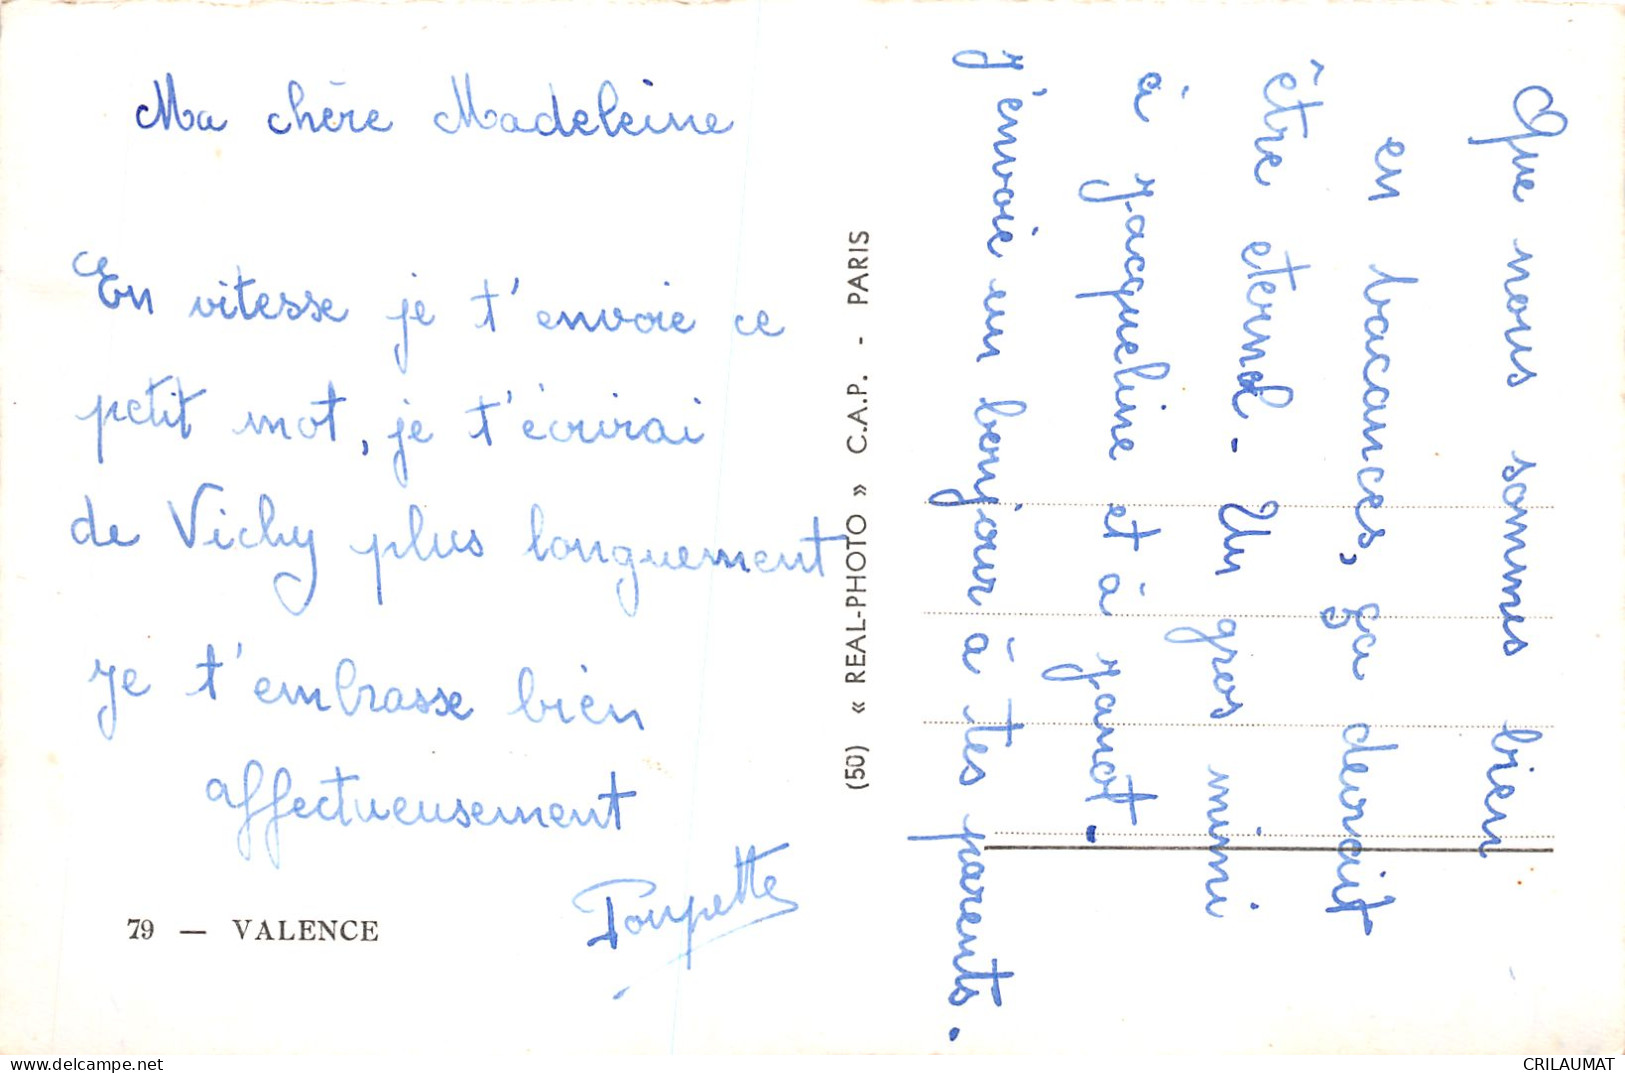 Ma chère Madeleine
En vitesse je t'envoie ce
petit mot, je t'écrirai
de Vichy plus longuement
Je t'embrasse bien
affectueusement
Poupette
79 — VALENCE
(50) « REAL-PHOTO » C.A.P. - PARIS
Que nous sommes bien
en bacances, ça devrait
être eternel. Un gros mimi
à Jacqueline et à Janot.
J'envoie un bonjour à tes parents.
CRILAUMAT